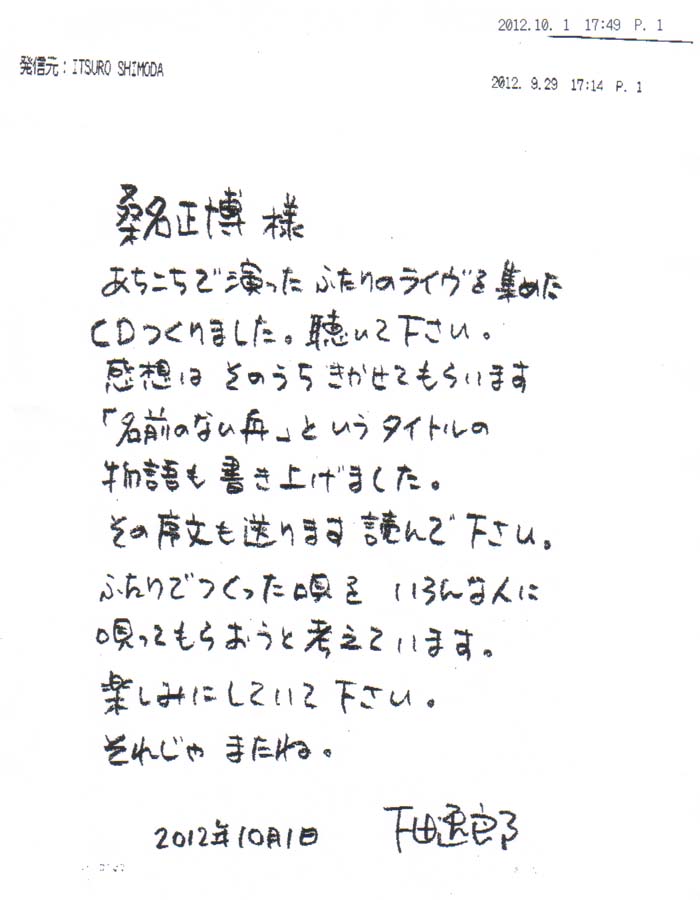 2012.10. 1 17:49 P. 1
発信元:ITSURO SHIMODA
2012. 9.29 17:14 P. 1
桑名正博 様
あちこちで演った ふたりのライヴを集めた
CDつくりました。聴いて下さい。
感想は そのうち きかせてもらいます
「名前のない舟」というタイトルの
物語も書き上げました。
その序文も送ります 読んで下さい。
ふたりでつくった唄を いろんな人に
唄ってもらおうと考えています。
楽しみにしていて下さい。
それじゃ またね。
2012年10月1日 下田逸郎